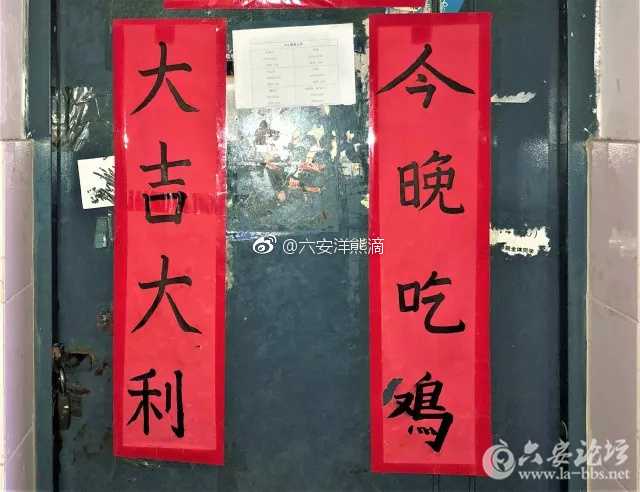 大吉大利
今晚吃鸡
@六安洋熊滴
六安论坛
www.la-bbs.net